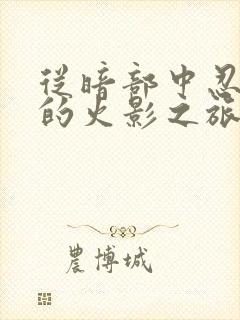 從暗部中忍
的火影之旅
農博城